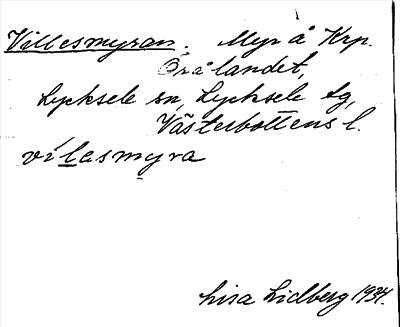 Villesmyran. Myr å Krp.
Örålandet,
Lycksele sn, Lycksele tg,
Västerbottens l.
vílasmyra
Lisa Lidberg 1934.